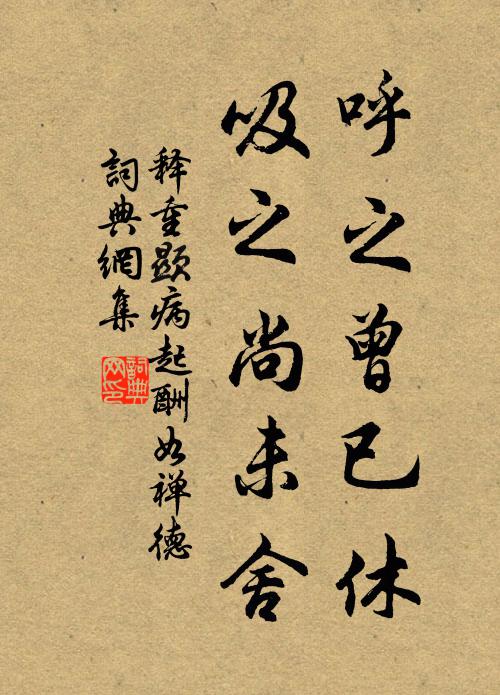 呼之曾已休
吸之尚未舍
释重顯病起酬如禅德
詞典網集
詞典網印